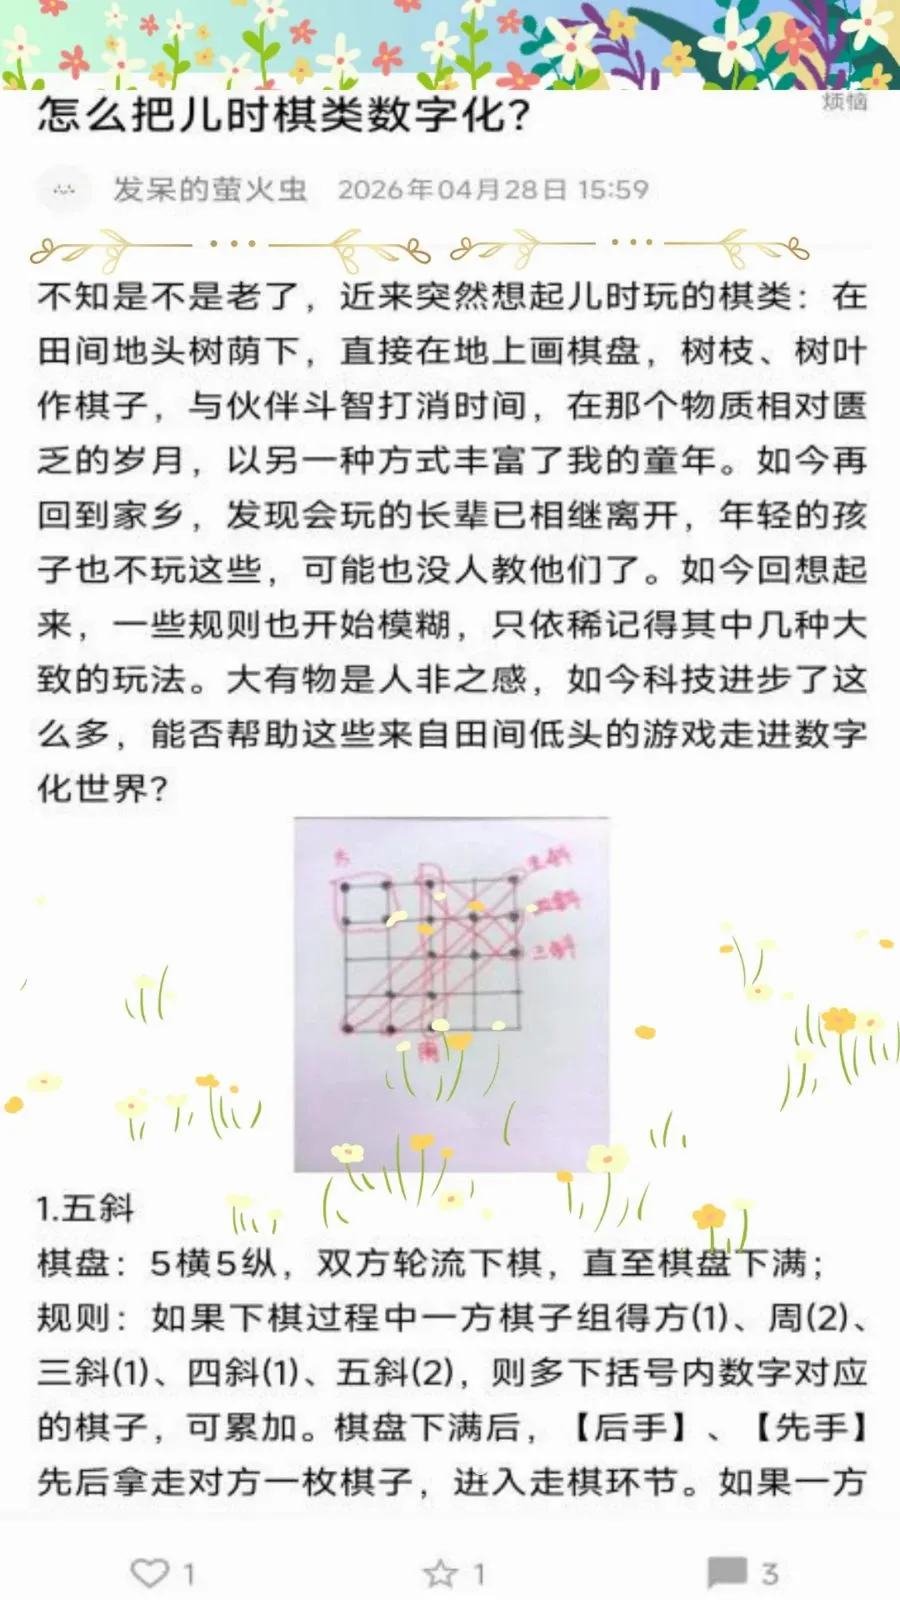 怎么把儿时棋类数字化？
烦恼
发呆的萤火虫 2026年04月28日 15:59
不知是不是老了，近来突然想起儿时玩的棋类：在
田间地头树荫下，直接在地上画棋盘，树枝、树叶
作棋子，与伙伴斗智打消时间，在那个物质相对匮
乏的岁月，以另一种方式丰富了我的童年。如今再
回到家乡，发现会玩的长辈已相继离开，年轻的孩
子也不玩这些，可能也没人教他们了。如今回想起
来，一些规则也开始模糊，只依稀记得其中几种大
致的玩法。大有物是人非之感，如今科技进步了这
么多，能否帮助这些来自田间低头的游戏走进数字
化世界？
方
五斜
四斜
三斜
周
1.五斜
棋盘：5横5纵，双方轮流下棋，直至棋盘下满；
规则：如果下棋过程中一方棋子组得方(1)、周(2)、
三斜(1)、四斜(1)、五斜(2)，则多下括号内数字对应
的棋子，可累加。棋盘下满后，【后手】、【先手】
先后拿走对方一枚棋子，进入走棋环节。如果一方
1
1
3